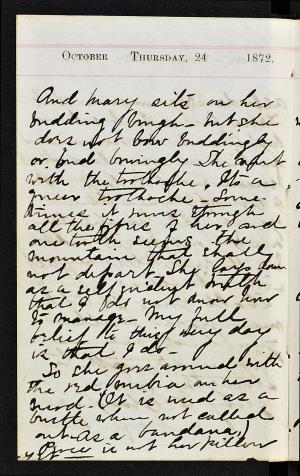 OCTOBER THURSDAY, 24 1872.
And Mary sits on her
budding bough - but she
does not bow buddingly
or bud bowingly She went
with the toothache. It's a
queer toothache. Some-
times it runs through
all the of her, and
one tooth seems the
mountain that shall
not depart. She lays down
as a self evident truth
that I do not know how
to manage - My full
belief to this very day
is that I do -
So she goes around with
the red nubia on her
head. (It is used as a
bustle when not called
out as a bandana,)
is not her pillow